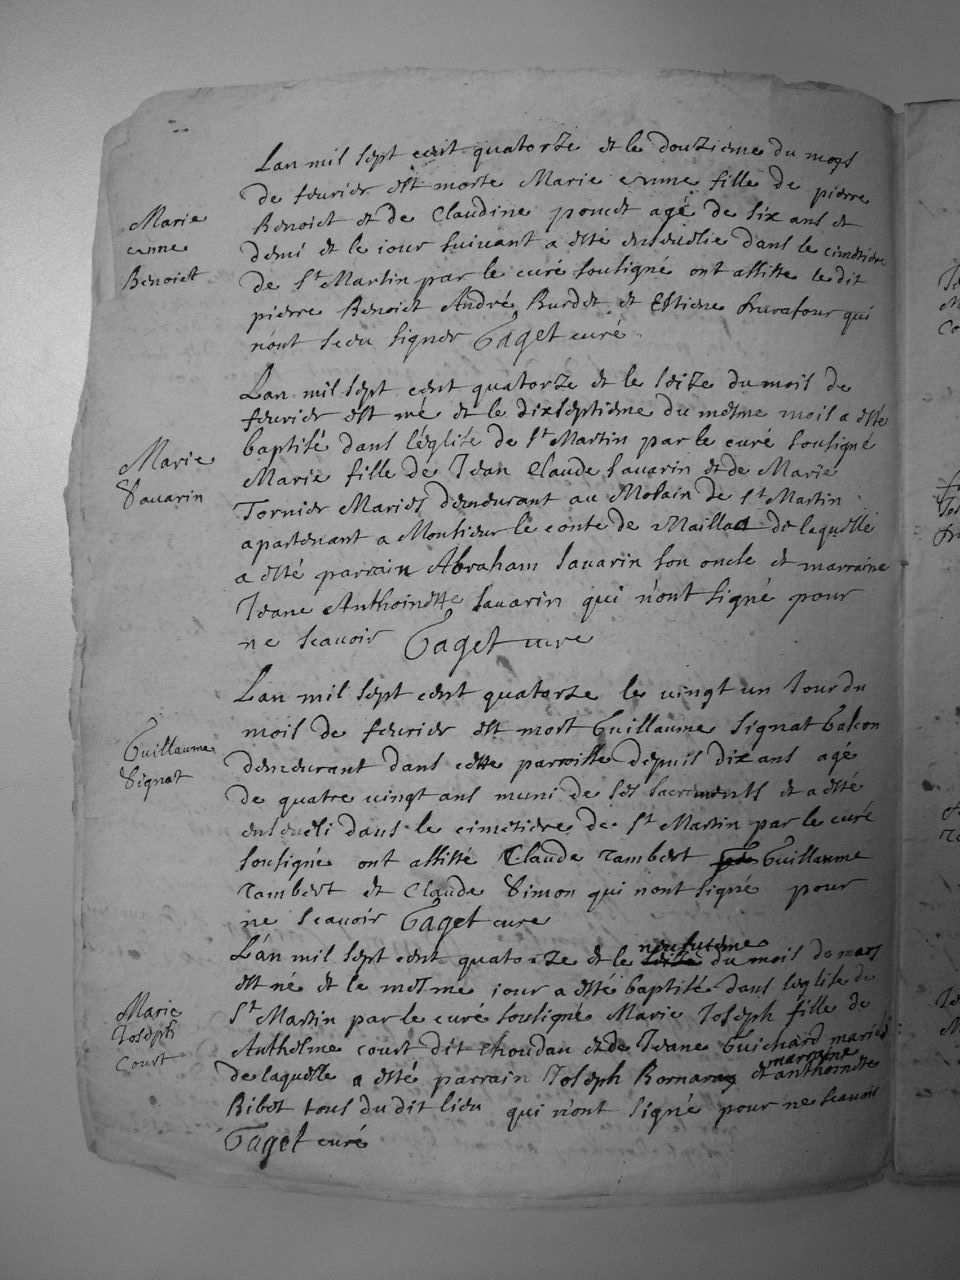 Lan mil sept cent quatorze et le douzieme du moys
de feurier est morte Marie enne fille de pierre
Marie
enne
Benoict
Benoict et de Claudine poncet agé de six ans et
demi et le jour suivant a esté enseuelie dans le cimetiere
de St Martin par le curé sousigné ont assisté le dit
pierre Benoict André Burdet et Estiene qui
nont sceu signer Taget curé
Lan mil sept cent quatorze et le seize du mois de
feurier est né et le dixseptieme du mesme mois a esté
Marie
Sauarin
baptisé dans l'église de St Martin par le curé sousigné
Marie fille de Jean Claude sauarin et de Marie
Tornier Maries demeurant au Molain de St Martin
apartenant a Monsieur le conte de Maillat de laquelle
a esté parrain Abraham sauarin son oncle et marraine
Jeane Anthoinette sauarin qui n'ont signé pour
ne scauoir Taget cure
Lan mil sept cent quatorze le vingt un jour du
mois de feurier est mort Guillaume signat
Guillaume
Signat
demeurant dans cette parroisse depuis dix ans agé
de quatre vingt ans muni de ses sacrements et a esté
enseueli dans le cimetiere de St Martin par le curé
sousigné ont assisté Claude rambert Guillaume
rambert et Claude Simon qui nont signé pour
ne scauoir Taget cure
L'an mil sept cent quatorze et le neufuieme du mois de mars
est né et le mesme jour a esté baptisé dans l'eglise de
Marie
Joseph
Court
St Martin par le curé sousigné Marie Joseph fille de
Anthelme court dit choudan et de Jeane Guichard mariés
de laquelle a esté parrain Joseph et marraine anthoinette
Ribot tous du dit lieu qui n'ont signé pour ne scauoir
Taget curé